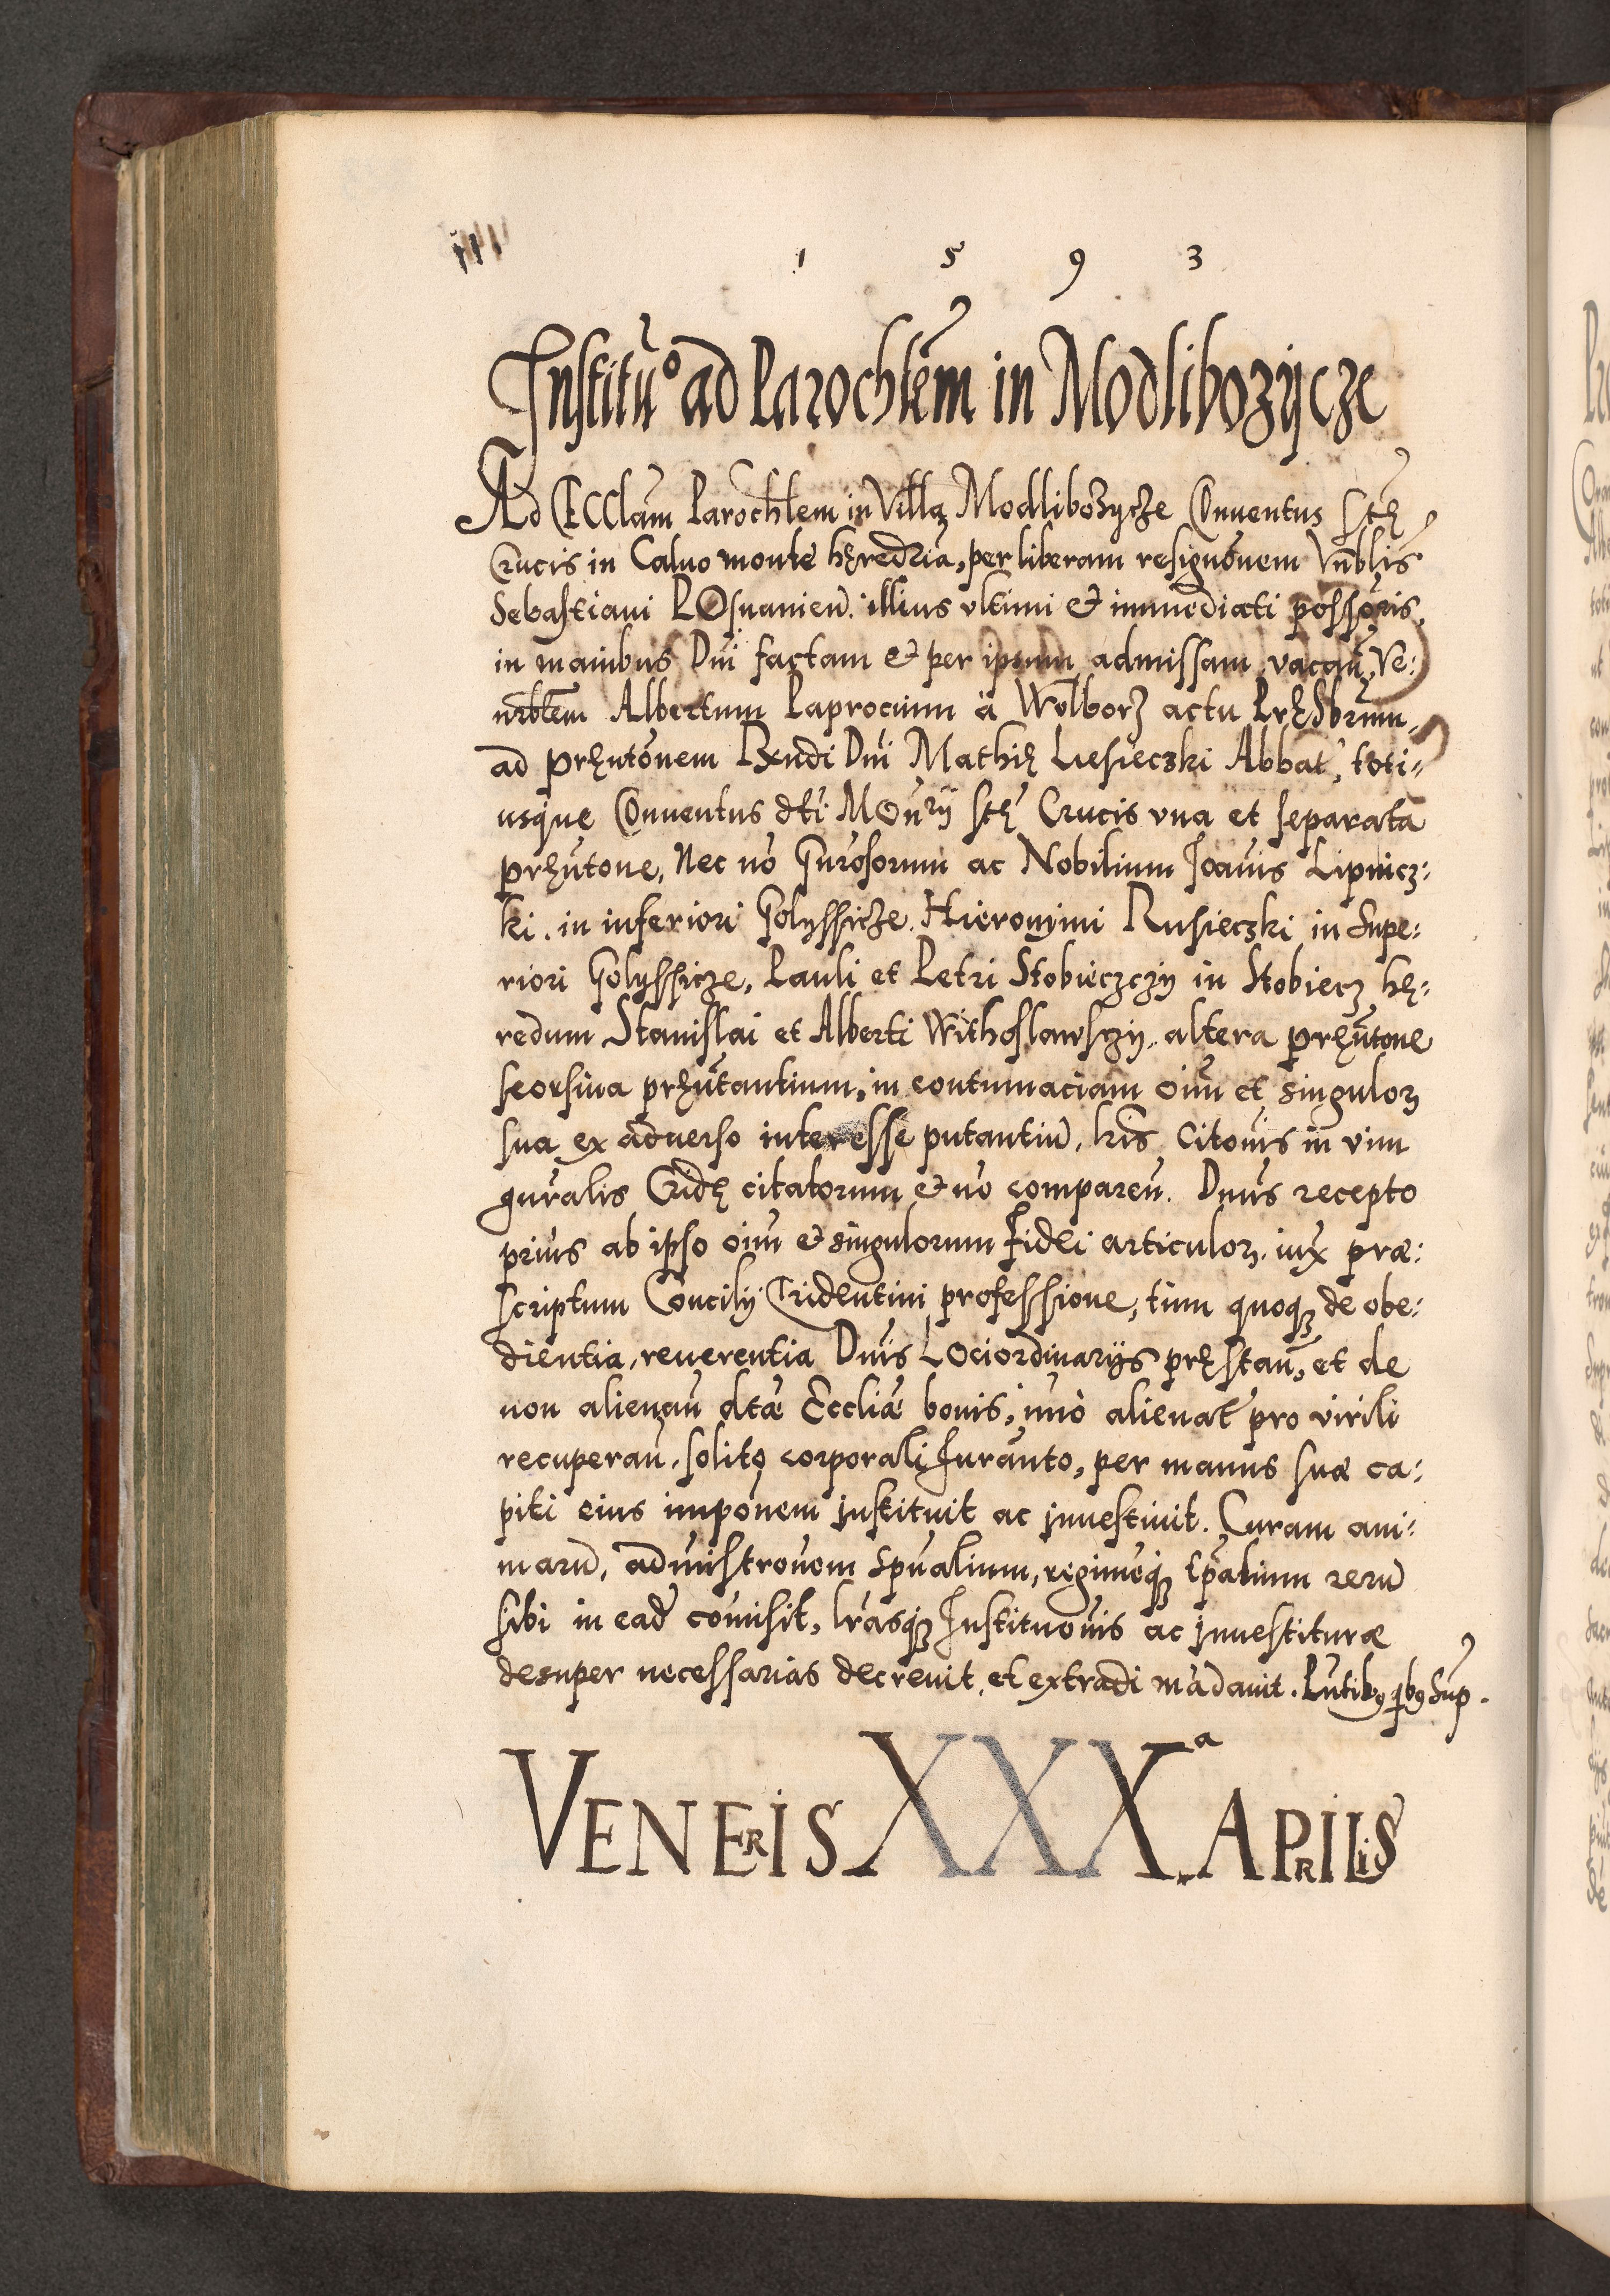 1 5 9 3
Institũo ad Parochlẽm in Modlibozÿcze
Ad Ecclãm Parochlem in Villa Modlibozycze Conuentus Stę
Crucis in Caluo monte hęredria, per liberam resignõnem Vñblis
Sebastiani POsnanieñ. illius vltimi & immediati possõris,
in manibus Dñi factam & per ipsum admissam vacañ, Ve:
nrblẽm Albertum Paprocium a Wolborz actu Pręsbrũm,
ad pręntõnem Rxndi Dñi Mathię Liesieczki Abbat̃, toti=
usque Conuentus dti MOnrÿ Stę Crucis vna et separata
pręñtone, Nec nõ Gñrosorum ac Nobilium Joanis Lipnicz:
ki in inferiori Golyssicze. Hieronymi Rusieczki in Supe:
riori Golyssicze, Pauli et Petri Stobieczczÿ in Stobiecz hę:
redum Stanislai et Alberti Withoslawszÿ, altera pręñtone
seorsiua pręñtantium, in contumaciam oĩm et singuloꝝ
sua ex aduerso interesse putantiũ, lris Citõnis in vim
gnralis Cridę citatorum & nõ compareñ. Dnus recepto
prius ab ipso oĩm & singulorum fidei articuloꝝ iux præ:
scriptum Concilÿ Tridentini professione, tum quoqꝫ de obe:
dientia, reuerentia Dnis LOciordinarÿs pręstañ, et de
non alienañ dtæ Eccliæ bonis, imo alienat̃ pro virili
recuperañ, solito corporali Jurãnto, per manus suæ ca:
piti eius imponem instituit ac inuestiuit. Curam ani:
marũ, admistrõnem Spũalium, regimẽqꝫ tp̃alium rerũ
sibi in eãd comisit, lrasqꝫ Institũonis ac inuestituræ
desuper necessarias decreuit, et extradi mãdauit. Pñtibꝰ qbꝰ sup̃.
VENERIS XXXª APRILIS